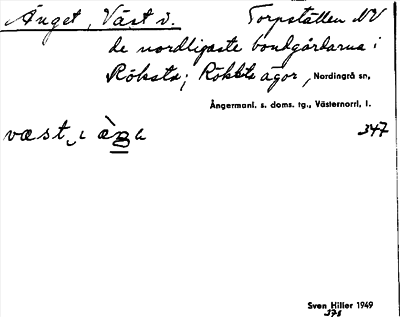 Änget, Väst i. Torpställen NV
de nordligaste bondgårdarna i
Röksta; Röksta ägor, Nordingrå sn,
Ångermanl. s. doms. tg., Västernorrl. l.
347
Sven Hiller 1949
378